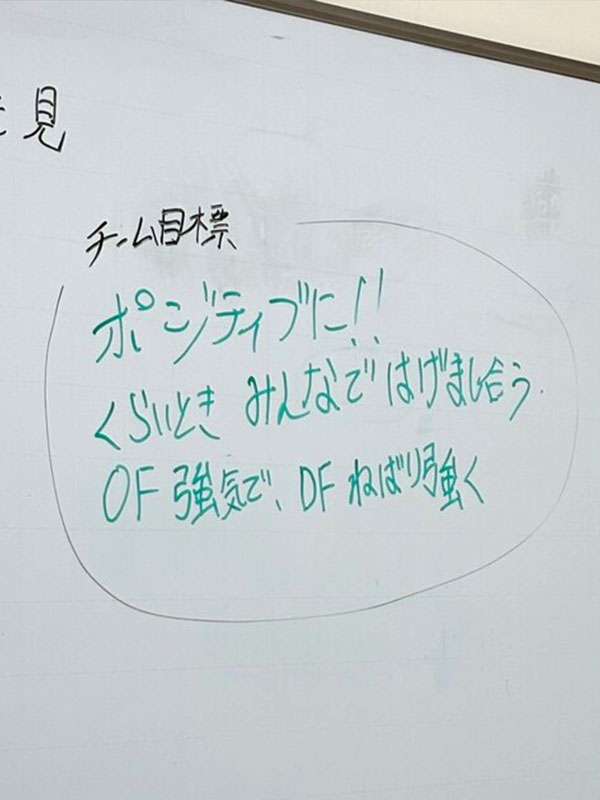 見
チーム目標
ポジティブに!!
くらいとき みんなで はげまし合う.
OF 強気で、DF ねばり強く